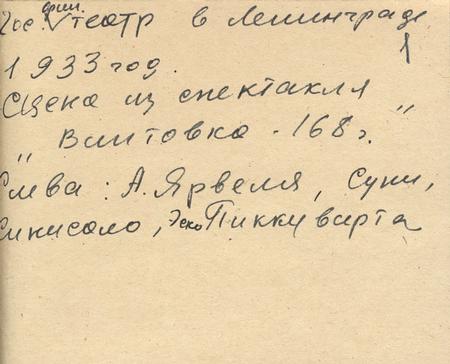 Гос. фин. театр в Ленинграде
1933 год.
Сцена из спектакля
„Винтовка - 168 г.”
Слева: А. Ярвеля, Суни,
Синисало, Эско Пиккуварта